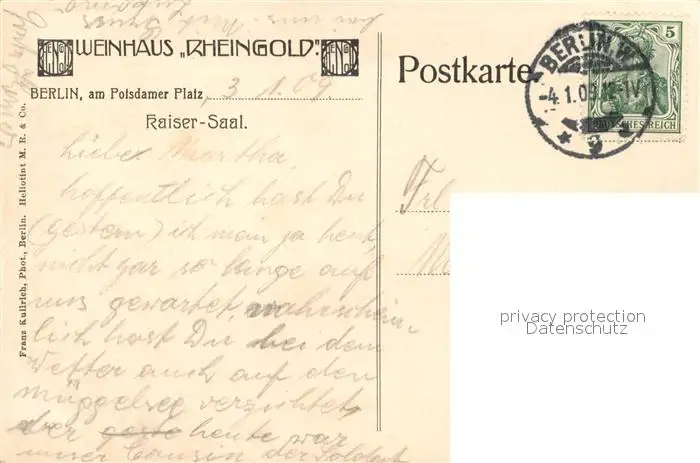 WEINHAUS „RHEINGOLD"
BERLIN, am Potsdamer Platz, 3 1. 09.
Kaiser-Saal.
Liebe Martha,
hoffentlich hast Du
(gestern) ich mein ja heut,
nicht gar so lange auf
uns gewartet, wahrschein-
lich hast Du bei dem
Wetter auch auf den
Müggelsee verzichtet,
heute war
unser Cousin der Soldat
Franz Kullrich, Phot., Berlin. Heliotint M. R. & Co.
Postkarte
BERLIN. W.
-4.1.09.
9
5
DEUTSCHES REICH
Frl
privacy protection
Datenschutz